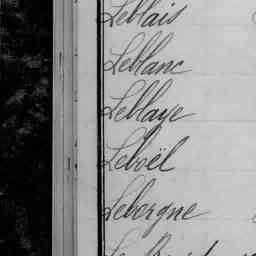 Leblais
Leblanc
Leblaye
Leboël
Leborgne